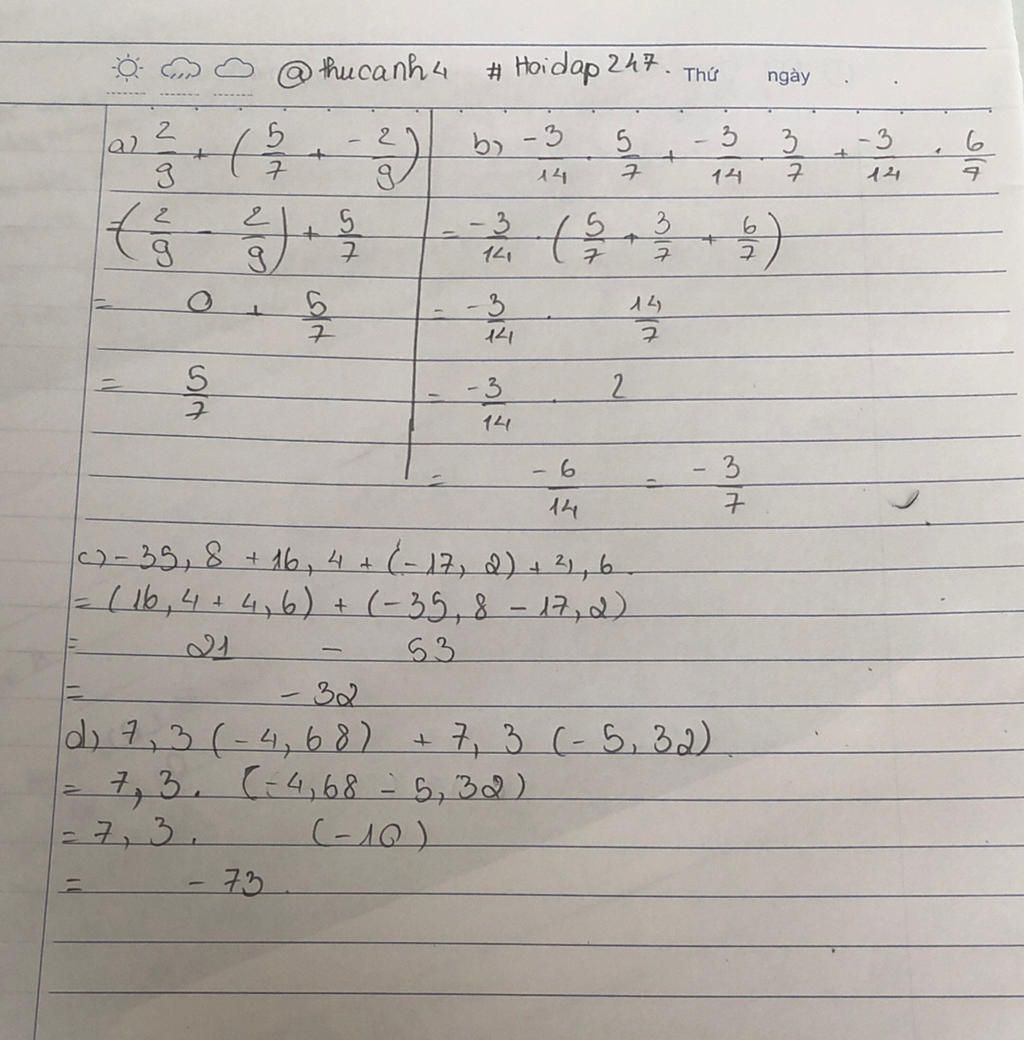 @thucanh4 # Hoidap247. Thứ ngày
a) 2/9 + (5/7 + -2/9)
= (2/9 - 2/9) + 5/7
= 0 + 5/7
= 5/7
b) -3/14 . 5/7 + -3/14 . 3/7 + -3/14 . 6/7
= -3/14 . (5/7 + 3/7 + 6/7)
= -3/14 . 14/7
= -3/14 . 2
= -6/14 = -3/7
c) -35,8 + 16,4 + (-17,2) + 4,6.
= (16,4 + 4,6) + (-35,8 - 17,2)
= 21 - 53
= -32
d) 7,3 (-4,68) + 7,3 (-5,32).
= 7,3. (-4,68 - 5,32)
= 7,3. (-10)
= -73.